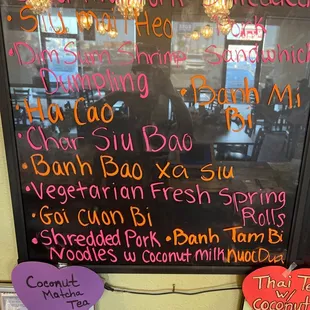 • Siu mai Heo
Pork
• Dim Sum Shrimp
Dumpling
Sandwich
• Banh Mi
Bi
• Ha Cao
• Char Siu Bao
• Banh Bao xa siu
• Vegetarian Fresh Spring
Rolls
• Goi cuon Bi
• Shredded Pork
Noodles w Coconut milk
• Banh Tam Bi
Nuoc Dua
Coconut
Matcha
Tea
Thai Te
w/
Coconut